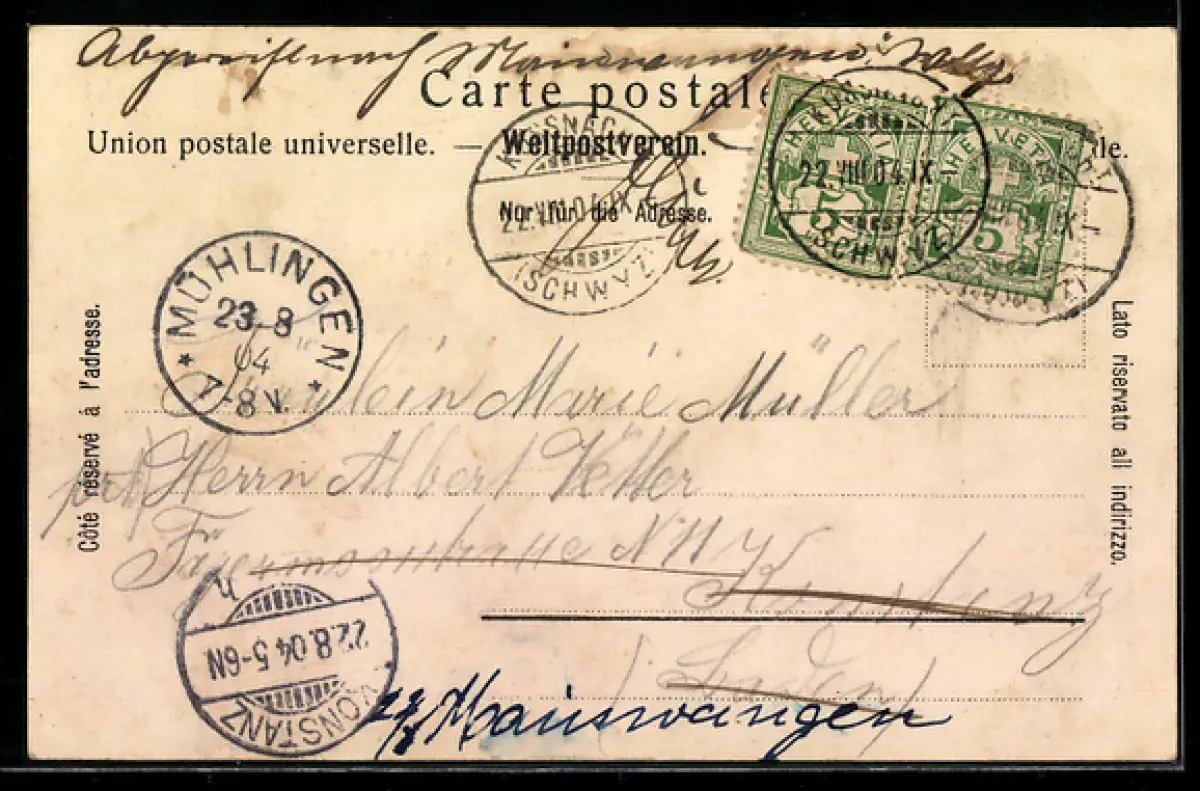 Abgereist nach Mainwangen,
Carte postale
Union postale universelle. — Weltpostverein. —
Nur für die Adresse.
Côté réservé à l'adresse.
Lato riservato ali indirizzo.
KÜSNACHT
22.VIII.04.IX
(SCHWYZ)
KÜSNACHT
22.VIII.04.IX
(SCHWYZ)
HELVETIA
5
HELVETIA
5
MÜHLINGEN
23.8
04
7-8V.
Fräulein Marie Müller
Herrn Albert Vetter
N 11
Konstanz
(Baden)
KONSTANZ
22.8.04.5-6N
Mainwangen